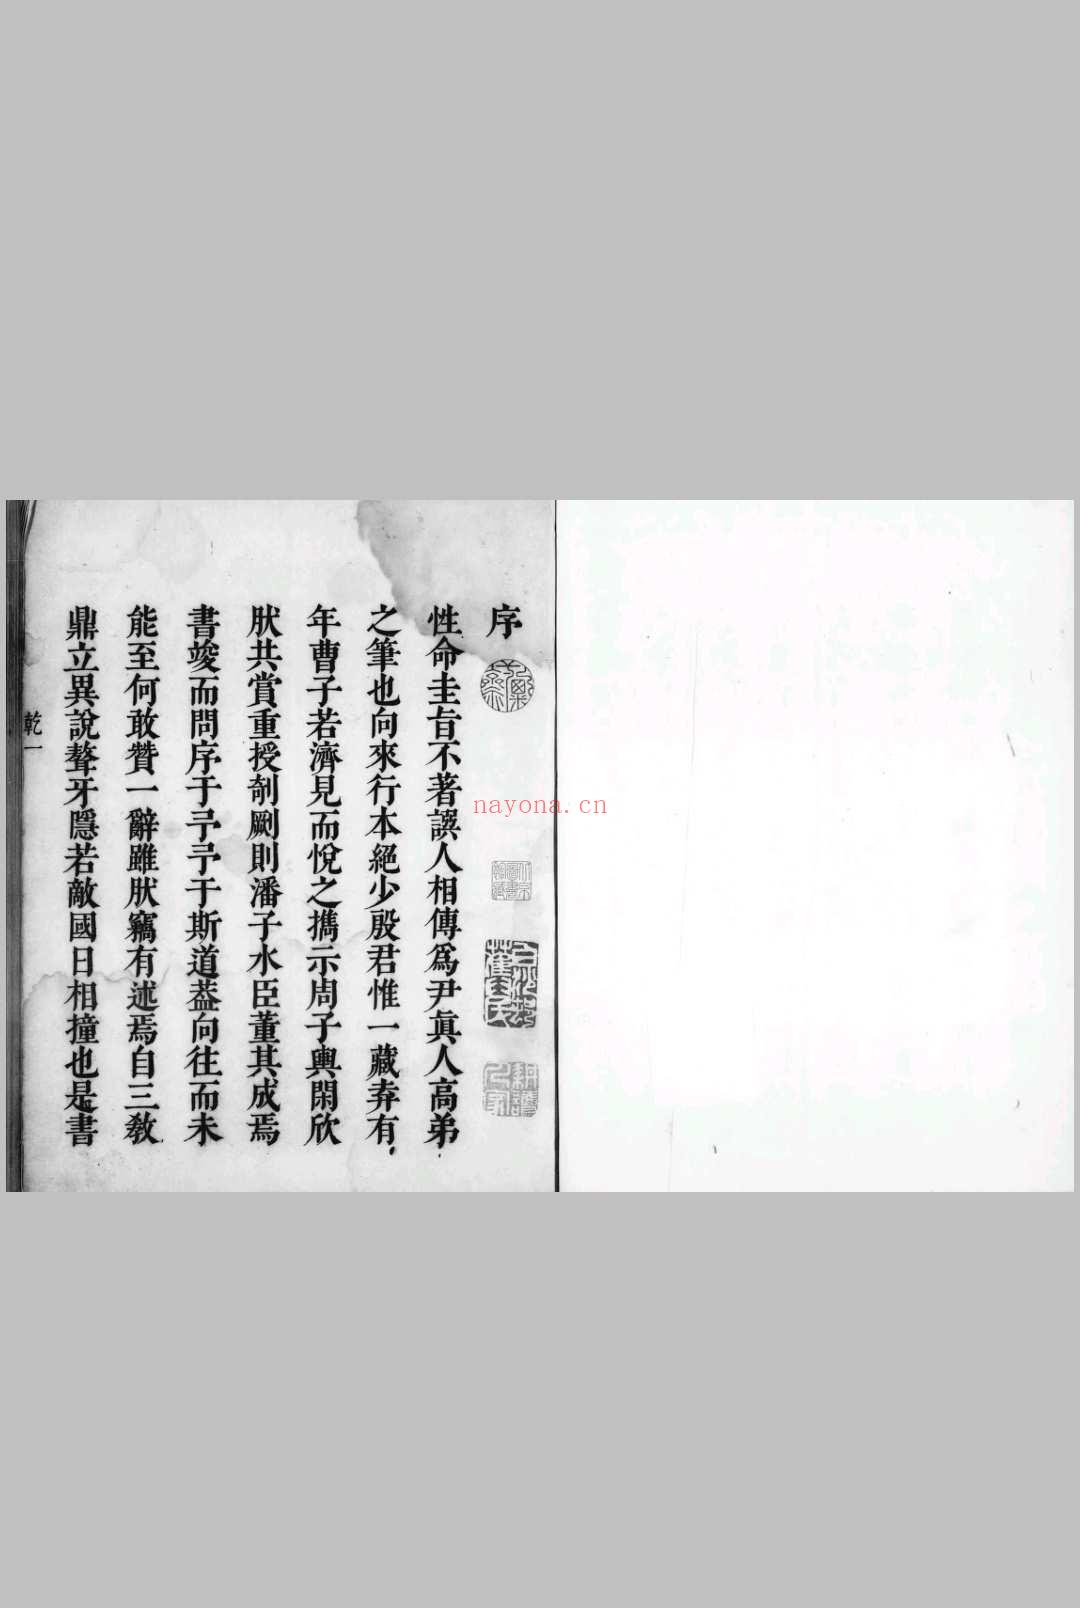 序
性命圭旨不著譔人相傳爲尹眞人高弟
之筆也向來行本絕少殷君惟一藏弆有
年曹子若濟見而悅之攜示周子輿閑欣
肰共賞重授剞劂則潘子水臣董其成焉
書竣而問序于予予于斯道葢向往而未
能至何敢贊一辭雖肰竊有述焉自三敎
鼎立異說聱牙隱若敵國日相撞也是書
乾一
nayona.cn